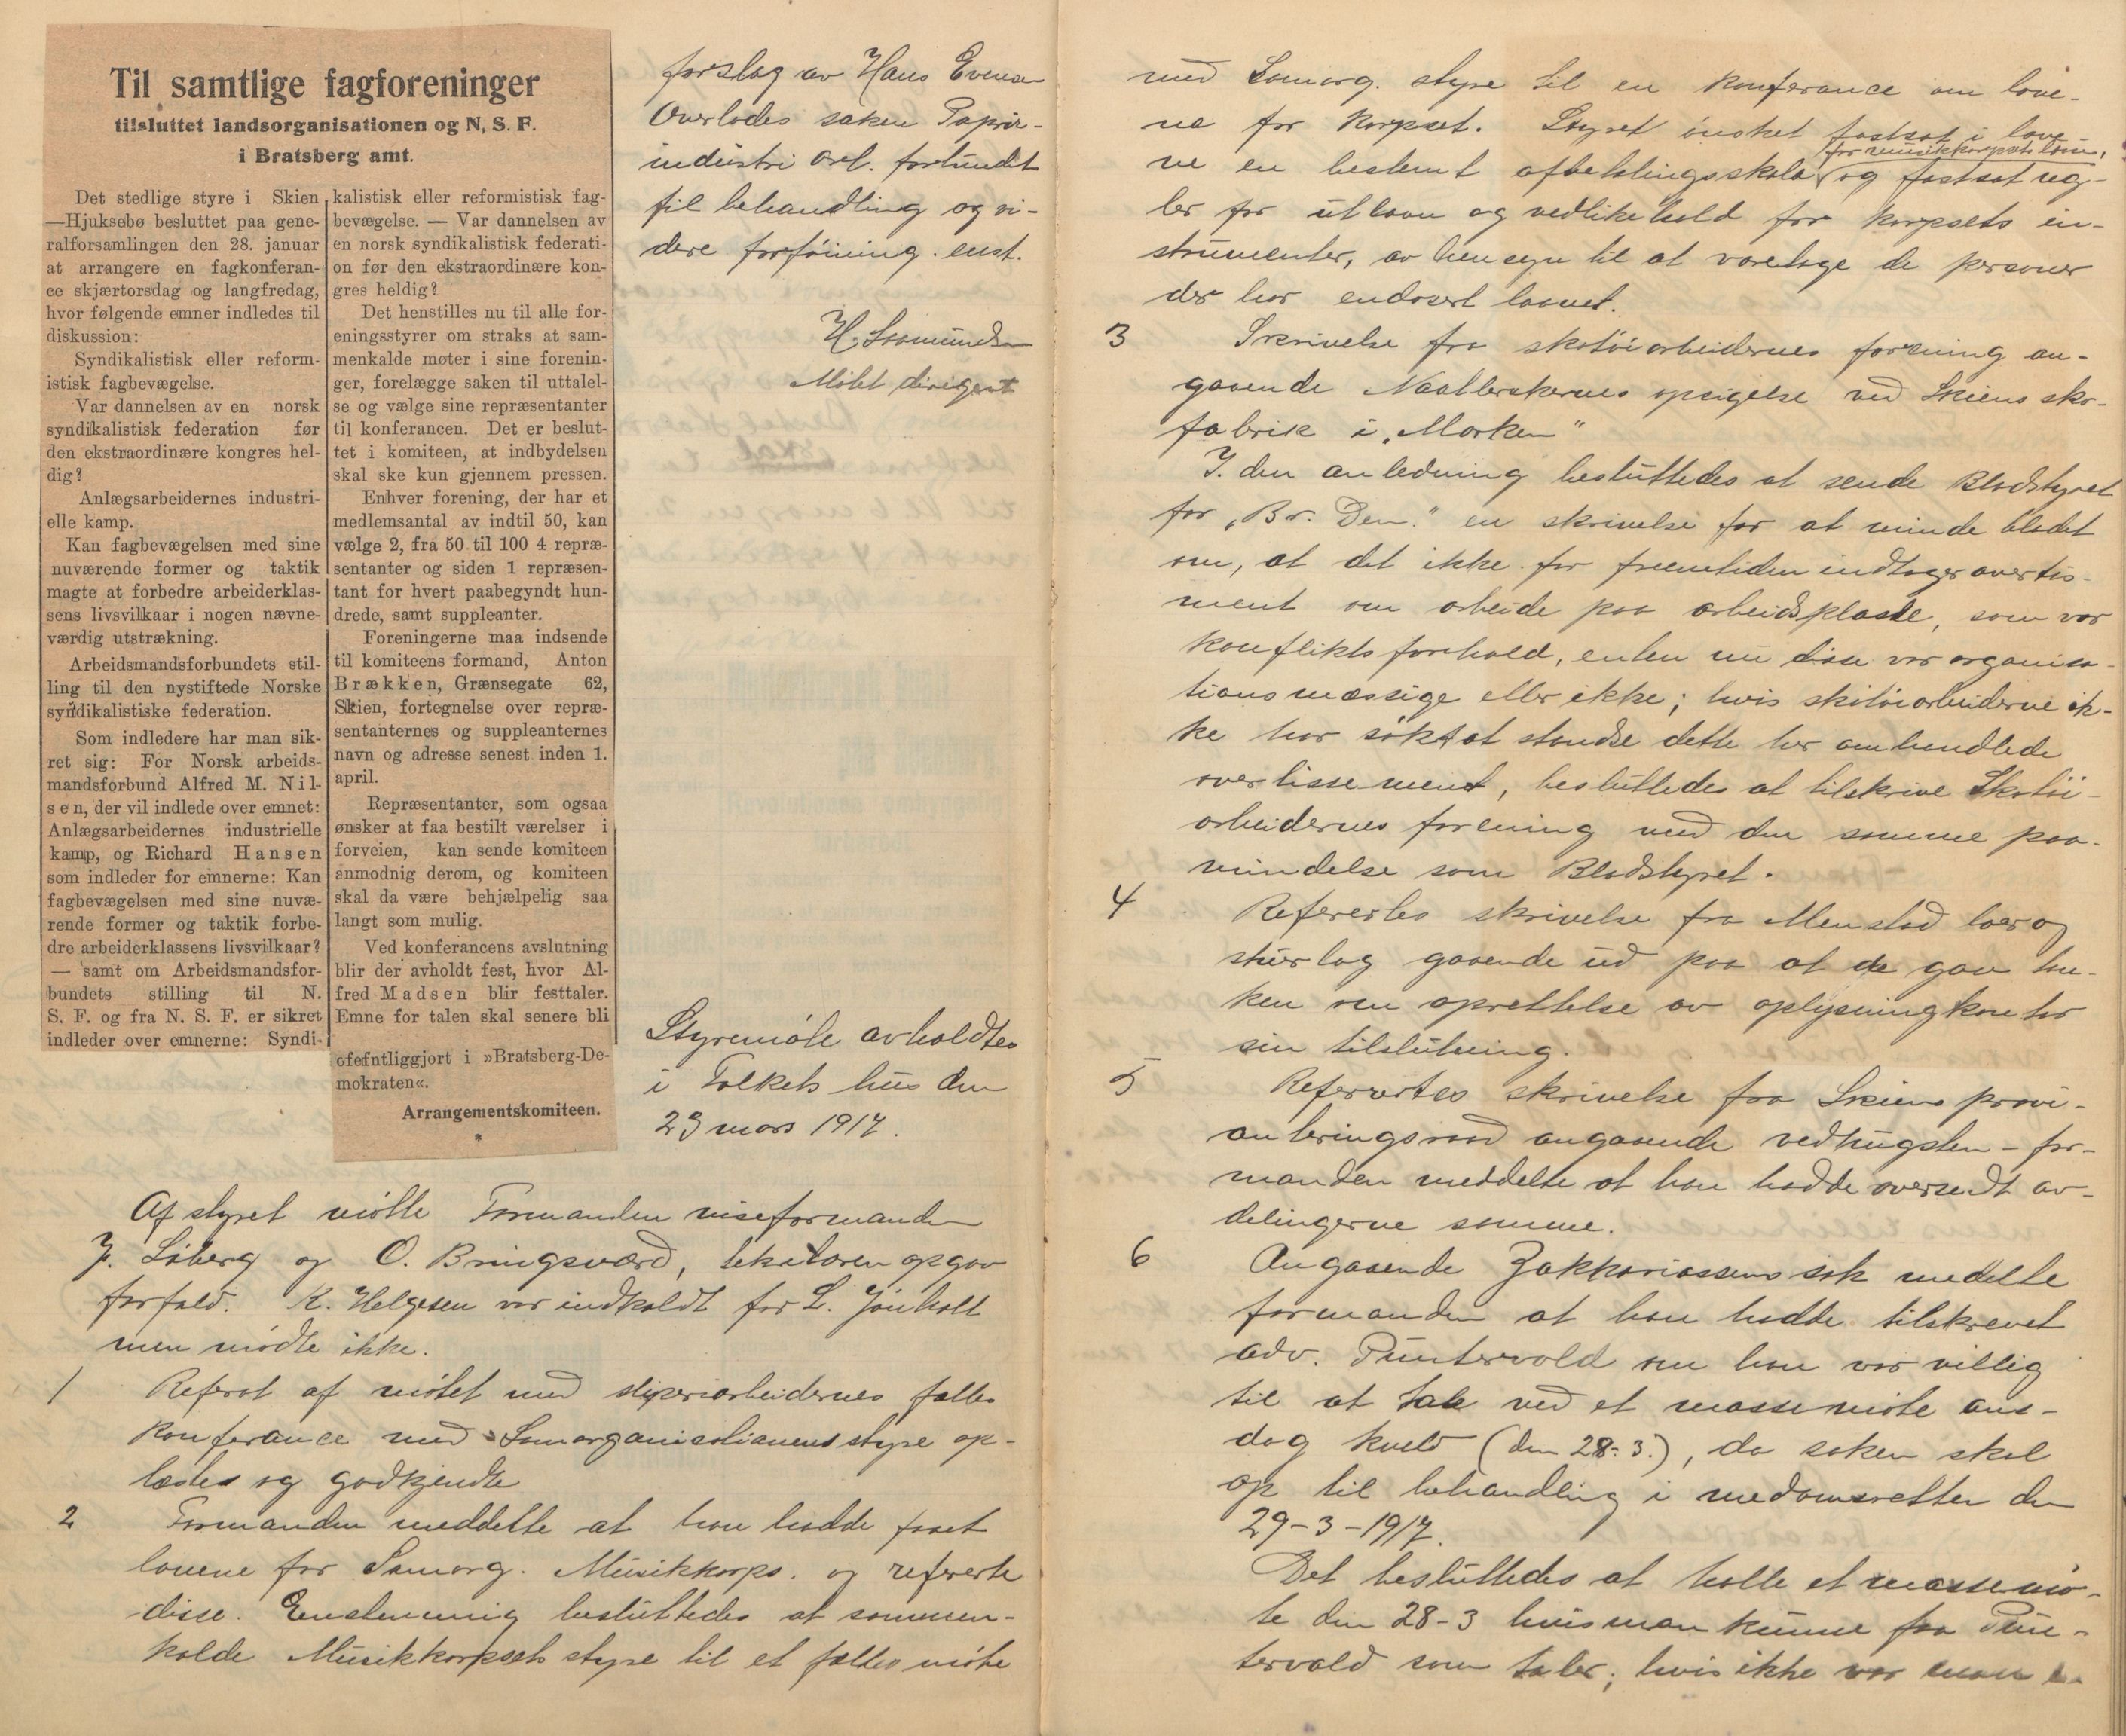 Til samtlige fagforeninger
tilsluttet landsorganisationen og N. S. F.
i Bratsberg amt.
Det stedlige styre i Skien
—Hjuksebø besluttet paa gene-
ralforsamlingen den 28. januar
at arrangere en fagkonferan-
ce skjærtorsdag og langfredag,
hvor følgende emner indledes til
diskussion:
Syndikalistisk eller reform-
istisk fagbevægelse.
Var dannelsen av en norsk
syndikalistisk federation før
den ekstraordinære kongres hel-
dig?
Anlægsarbeidernes industri-
elle kamp.
Kan fagbevægelsen med sine
nuværende former og taktik
magte at forbedre arbeiderklas-
sens livsvilkaar i nogen nævne-
værdig utstrækning.
Arbeidsmandsforbundets stil-
ling til den nystiftede Norske
syndikalistiske federation.
Som indledere har man sik-
ret sig: For Norsk arbeids-
mandsforbund Alfred M. Nil-
sen, der vil indlede over emnet:
Anlægsarbeidernes industrielle
kamp, og Richard Hansen
som indleder for emnerne: Kan
fagbevægelsen med sine nuvæ-
rende former og taktik forbe-
dre arbeiderklassens livsvilkaar?
— samt om Arbeidsmandsfor-
bundets stilling til N.
S. F. og fra N. S. F. er sikret
indleder over emnerne: Syndi-
kalistisk eller reformistisk fag-
bevægelse. — Var dannelsen av
en norsk syndikalistisk federati-
on før den ekstraordinære kon-
gres heldig?
Det henstilles nu til alle for-
eningsstyrer om straks at sam-
menkalde møter i sine forenin-
ger, forelægge saken til uttalel-
se og vælge sine repræsentanter
til konferancen. Det er beslut-
tet i komiteen, at indbydelsen
skal ske kun gjennem pressen.
Enhver forening, der har et
medlemsantal av indtil 50, kan
vælge 2, fra 50 til 100 4 repræ-
sentanter og siden 1 repræsen-
tant for hvert paabegyndt hun-
drede, samt suppleanter.
Foreningerne maa indsende
til komiteens formand, Anton
Brækken, Grænsegate 62,
Skien, fortegnelse over repræ-
sentanternes og suppleanternes
navn og adresse senest inden 1.
april.
Repræsentanter, som ogsaa
ønsker at faa bestilt værelser i
forveien, kan sende komiteen
anmodnig derom, og komiteen
skal da være behjælpelig saa
langt som mulig.
Ved konferancens avslutning
blir der avholdt fest, hvor Al-
fred Madsen blir festtaler.
Emne for talen skal senere bli
ofefntliggjort i »Bratsberg-De-
mokraten«.
Arrangementskomiteen.
*
forslag av Hans Evensen
Overlodes saken Papir-
industri arb. forbundet
til behandling og vi-
dere forføining. enst.
H. Saamundsen
Møtet dirigent
Styremøte avholdtes
i Folkets hus den
23 mars 1917.
Af styret møtte Formanden viseformanden
J. Løberg og O. Bringsværd, sekretæren opgav
forfald. K. Helgesen var indkaldt for L. Jönholt
men mødte ikke.
1 Referat af møtet med sliperiarbeidernes fælles
konferance med Samorganisationens styre op-
læstes og godkjendte
2 Formanden meddelte at han hadde faaet
lovene for Samorg. Musikkorps. og refererte
disse. Enstemmig besluttedes at sammen-
kalde Musikkorpsets styre til et fælles møte
med Samorg. styre til en konferance om love-
ne for korpset. Styret ønsket fastsat i love-
ne en bestemt afbetalingsskala for musikkorpsets laan, og fastsat reg-
ler for utlaan og vedlikehold for korpsets in-
strumenter, av hensyn til at varetage de personer
der har endosert laanet.
3 Skrivelse fra skotøiarbeidernes forening an-
gaaende Naatlerskernes opsigelse ved Skiens sko-
fabrik i „Marken“
I den anledning besluttedes at sende Bladstyret
for „Br. Dem.“ en skrivelse for at minde bladet
om, at det ikke for fremtiden indtager avertis-
ment om arbeide paa arbeidsplasse, som var
konfliktsforhold, enten nu disse var organisa-
tionsmæssige eller ikke; hvis skotøiarbeiderne ik-
ke har søkt at standse dette her omhandlede
avertissement, besluttedes at tilskrive Skotøi-
arbeidernes forening med den samme paa-
mindelse som Bladstyret.
4 Referertes skrivelse fra Menstad laer og
stuerlag gaaende ud paa at de gav tan-
ken om oprettelse av oplysningkontor
sin tilslutning.
5 Referertes skrivelse fra Skiens provi-
anteringsraad angaaende vedhugsten - for-
manden meddelte at han hadde oversendt av-
delingerne samme.
6 Angaaende Zakkariassens sak medelte
formanden at han hadde tilskrevet
adv. Puntervold om han var villig
til at tale ved et massemøte ons-
dag kveld (den 28-3.), da saken skal
op til behandling i medomsretten den
29-3-1917.
Det besluttedes at holde et massemø-
te den 28-3 hvis man kunne faa Pun-
tervold som taler; hvis ikke var man